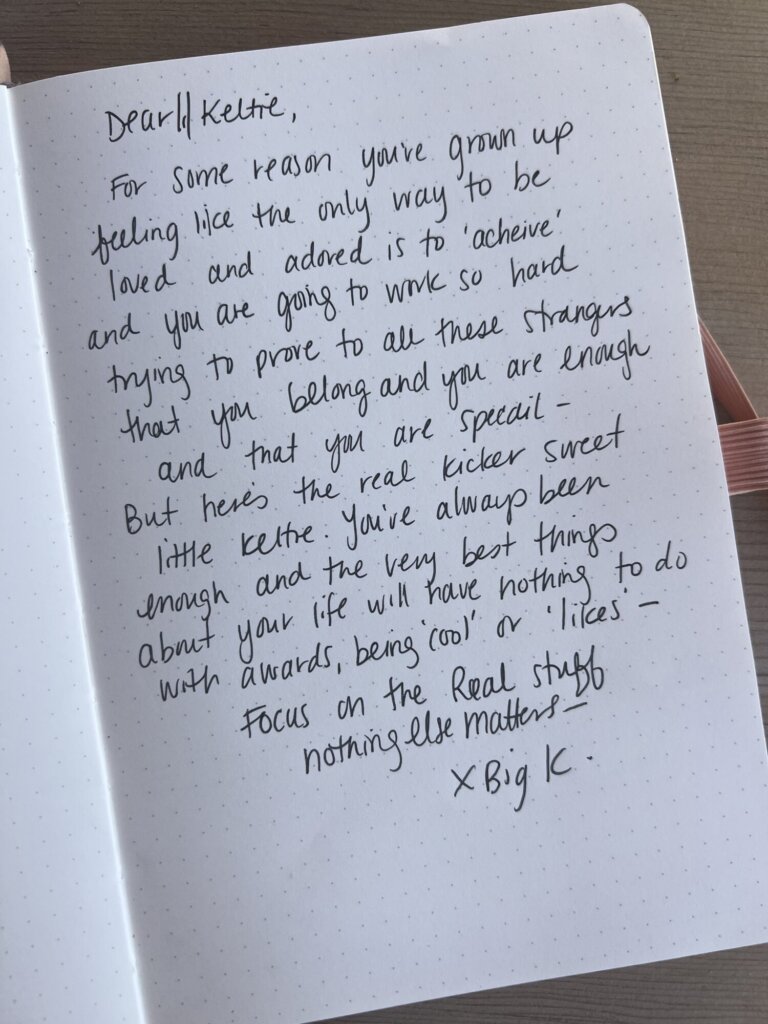 Dear lil Keltie,
For some reason you've grown up
feeling like the only way to be
loved and adored is to 'acheive'
and you are going to work so hard
trying to prove to all these strangers
that you belong and you are enough
and that you are specail -
But here's the real kicker sweet
little Keltie. You've always been
enough and the very best things
about your life will have nothing to do
with awards, being 'cool' or 'likes' -
Focus on the Real stuff
nothing else matters -
X Big K.